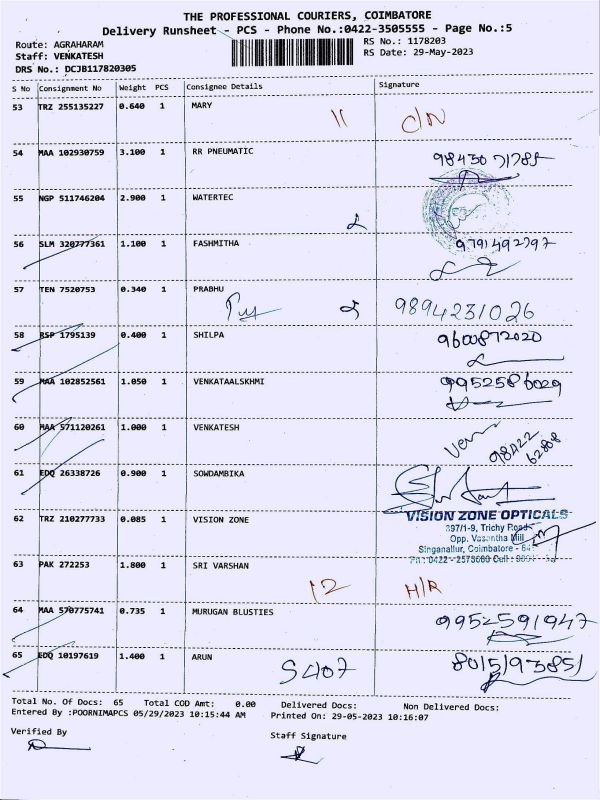 THE PROFESSIONAL COURIERS, COIMBATORE
Delivery Runsheet - PCS - Phone No.:0422-3505555 - Page No.:5
Route: AGRAHARAM
RS No.: 1178203
Staff: VENKATESH
RS Date: 29-May-2023
DRS No.: DCJB117820305
S No Consignment No Weight PCS Consignee Details Signature
53 TRZ 255135227 0.640 1 MARY
11 C/N
54 MAA 102930759 3.100 1 RR PNEUMATIC
98430 71785
55 NGP 511746204 2.900 1 WATERTEC
56 SLM 320777361 1.100 1 FASHMITHA 9791492797
57 TEN 7520753 0.340 1 PRABHU
9894231026
58 RSP 1795139 0.400 1 SHILPA 9600872020
59 MAA 102852561 1.050 1 VENKATAALSKHMI 9952586029
60 MAA 571120261 1.000 1 VENKATESH
98422
62808
61 EDQ 26338726 0.900 1 SOWDAMBIKA
62 TRZ 210277733 0.085 1 VISION ZONE
VISION ZONE OPTICALS
397/1-9, Trichy Road
Opp. Vasantha Mill
Singanallur, Coimbatore - 641
Ph : 0422 - 2573669 Cell :
63 PAK 272253 1.800 1 SRI VARSHAN
12 H/R
64 MAA 570775741 0.735 1 MURUGAN BLUSTIES
9952591947
65 EDQ 10197619 1.400 1 ARUN
S407 8015193851
Total No. Of Docs: 65 Total COD Amt: 0.00 Delivered Docs: Non Delivered Docs:
Entered By :POORNIMAPCS 05/29/2023 10:15:44 AM Printed On: 29-05-2023 10:16:07
Verified By
Staff Signature